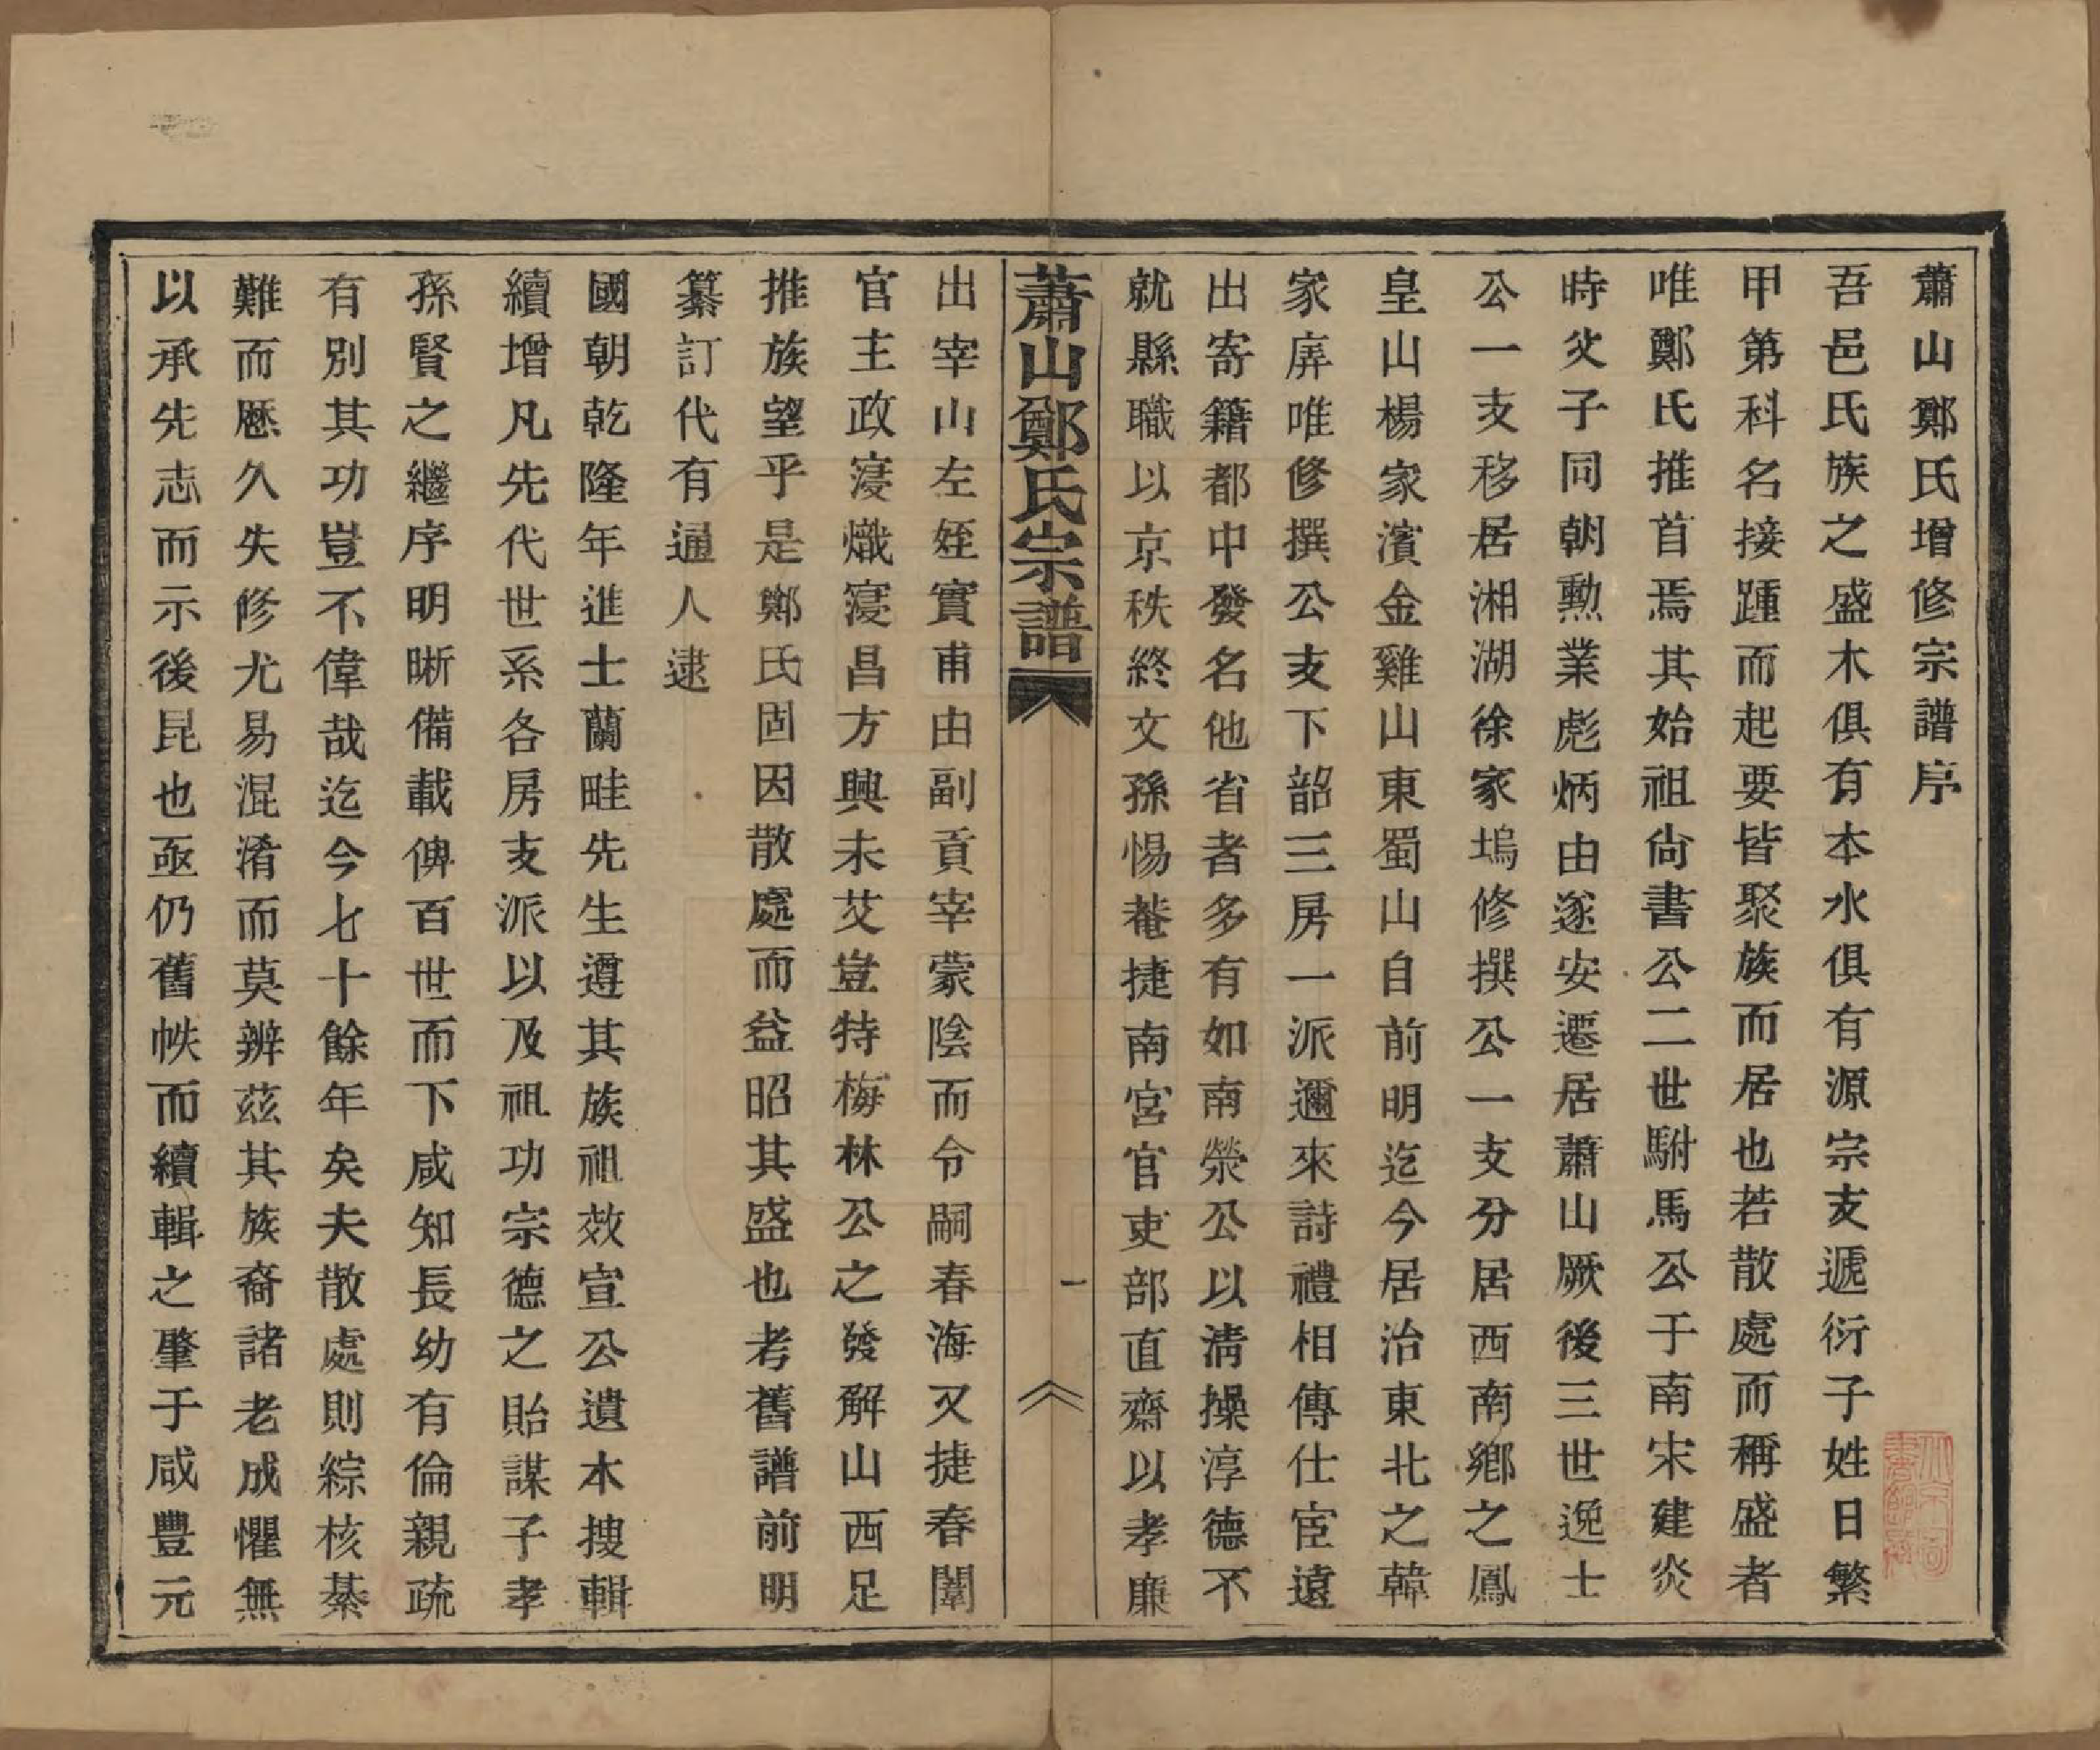 蕭山鄭氏增修宗譜序
吾邑氏族之盛木俱有本水俱有源宗支遞衍子姓日繁
甲第科名接踵而起要皆聚族而居也若散處而稱盛者
唯鄭氏推首焉其始祖尙書公二世駙馬公于南宋建炎
時父子同朝勲業彪炳由遂安遷居蕭山厥後三世逸士
公一支移居湘湖徐家塢修撰公一支分居西南鄉之鳳
皇山楊家濱金雞山東蜀山自前明迄今居治東北之韓
家庠唯修撰公支下韶三房一派邇來詩禮相傳仕宦遠
出寄籍都中發名他省者多有如南滎公以淸操淳德不
就縣職以京秩終文孫惕菴捷南宮官吏部直齋以孝廉
蕭山鄭氏宗譜
一
出宰山左姪實甫由副貢宰蒙陰而令嗣春海又捷春闈
官主政寖熾寖昌方興未艾豈特梅林公之發解山西足
推族望乎是鄭氏固因散處而益昭其盛也考舊譜前明
纂訂代有通人逮
國朝乾隆年進士蘭畦先生遵其族祖效宣公遺本搜輯
續增凡先代世系各房支派以及祖功宗德之貽謀子孝
孫賢之繼序明晰備載俾百世而下咸知長幼有倫親疏
有別其功豈不偉哉迄今七十餘年矣夫散處則綜核綦
難而歷久失修尤易混淆而莫辨茲其族裔諸老成懼無
以承先志而示後昆也亟仍舊帙而續輯之肇于咸豐元